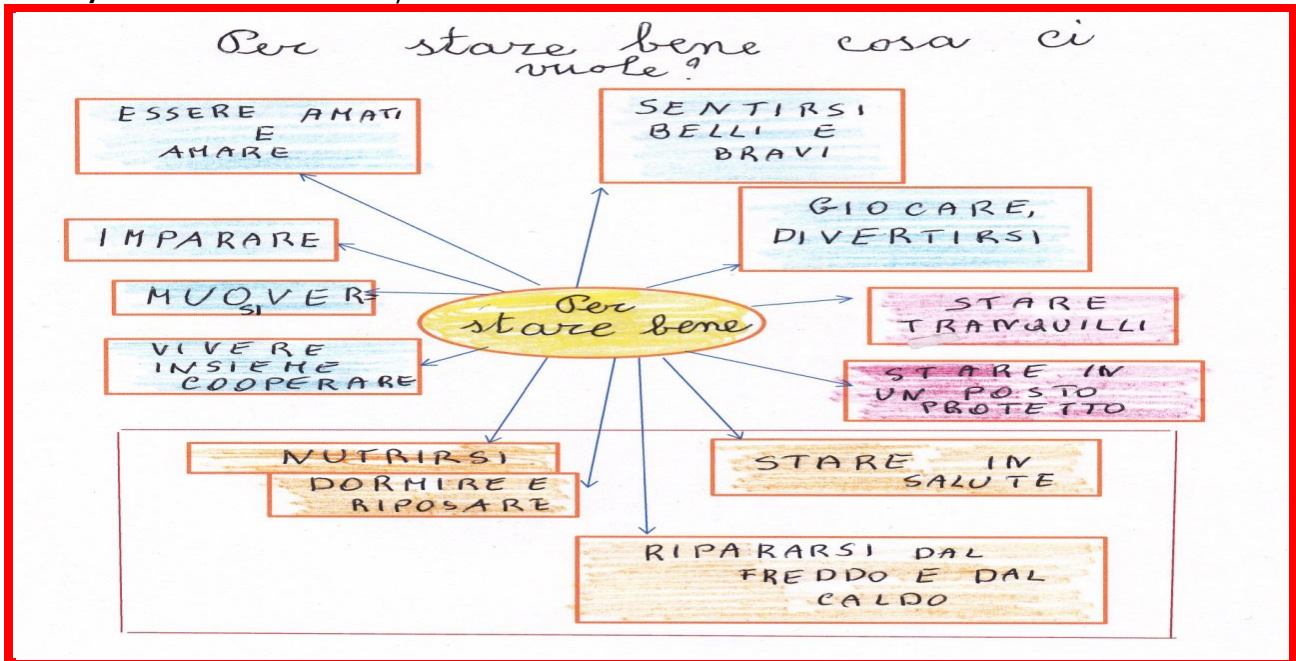 Per stare bene cosa ci
vuole?
ESSERE AMATI
E
AMARE
SENTIRSI
BELLI E
BRAVI
GIOCARE,
DIVERTIRSI
IMPARARE
MUOVER
SI
Per
stare bene
STARE
TRANQUILLI
VIVERE
INSIEME
COOPERARE
STARE IN
UN POSTO
PROTETTO
NUTRIRSI
DORMIRE E
RIPOSARE
STARE IN
SALUTE
RIPARARSI DAL
FREDDO E DAL
CALDO